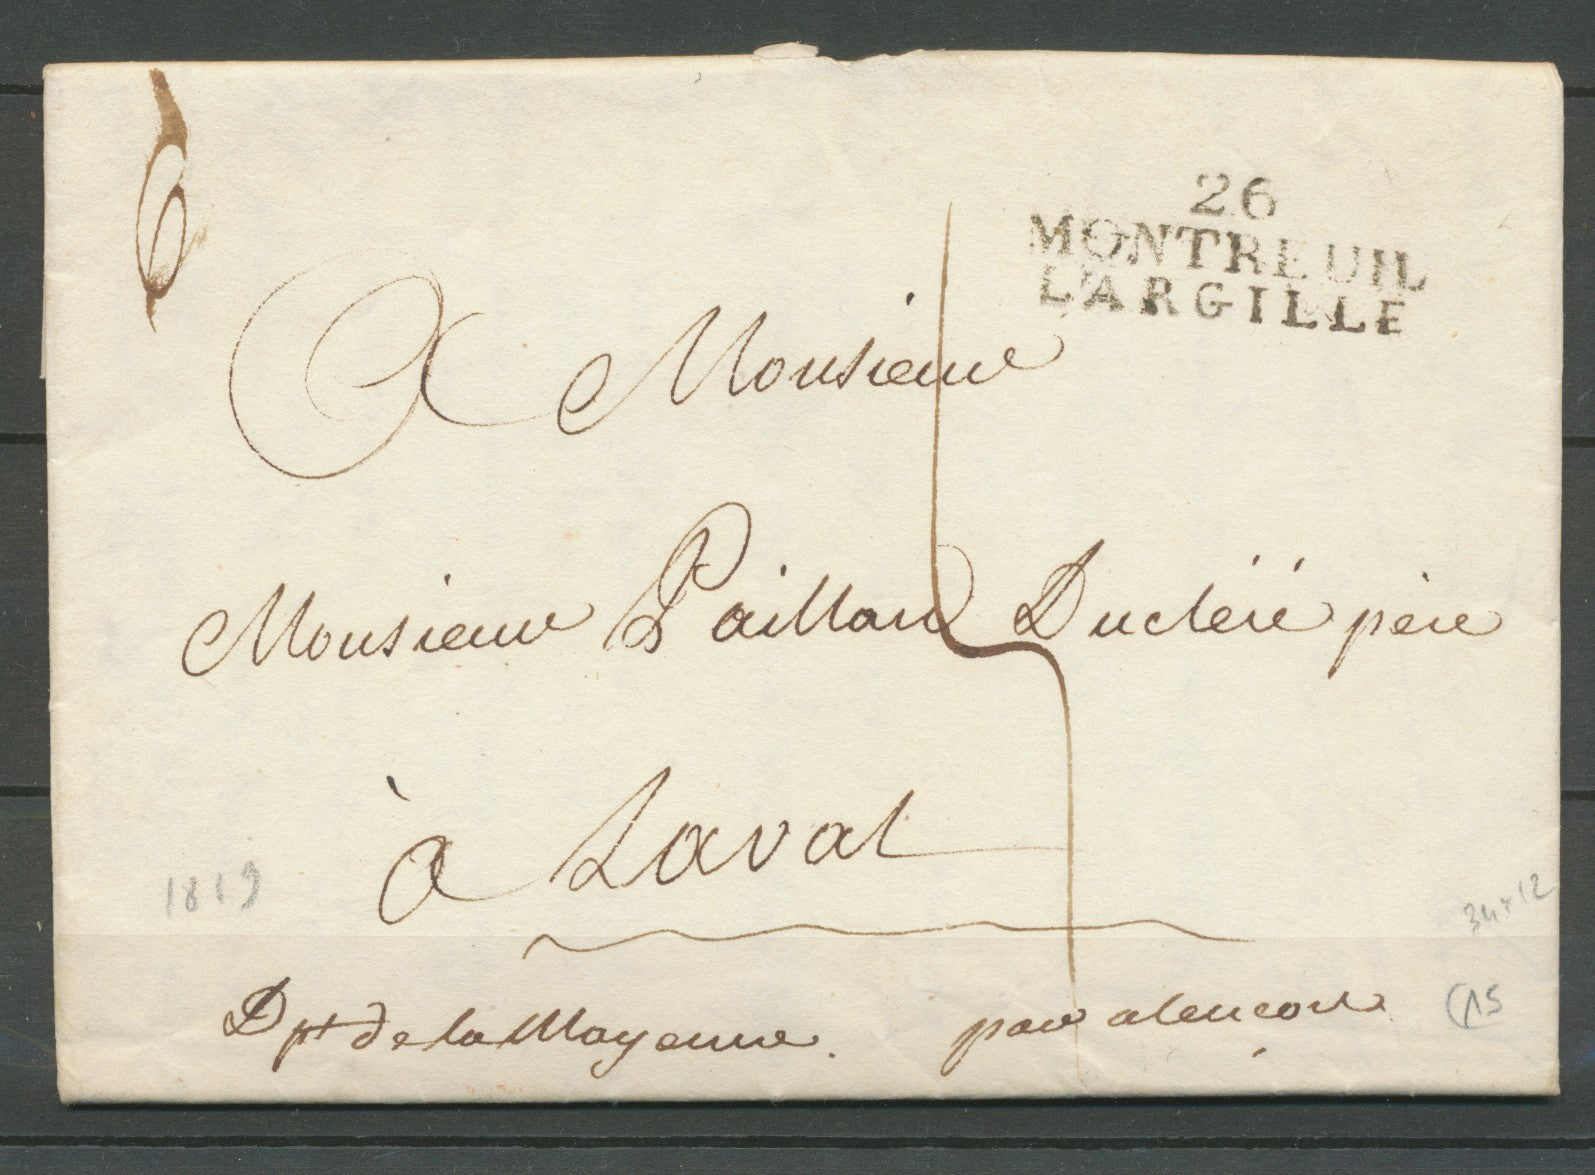 6
26
MONTREUIL
L'ARGILLE
A Monsieur
Monsieur Paillard Ducléré père
à Laval
1819
34+12
Dpt de la Mayenne. par alençon
15